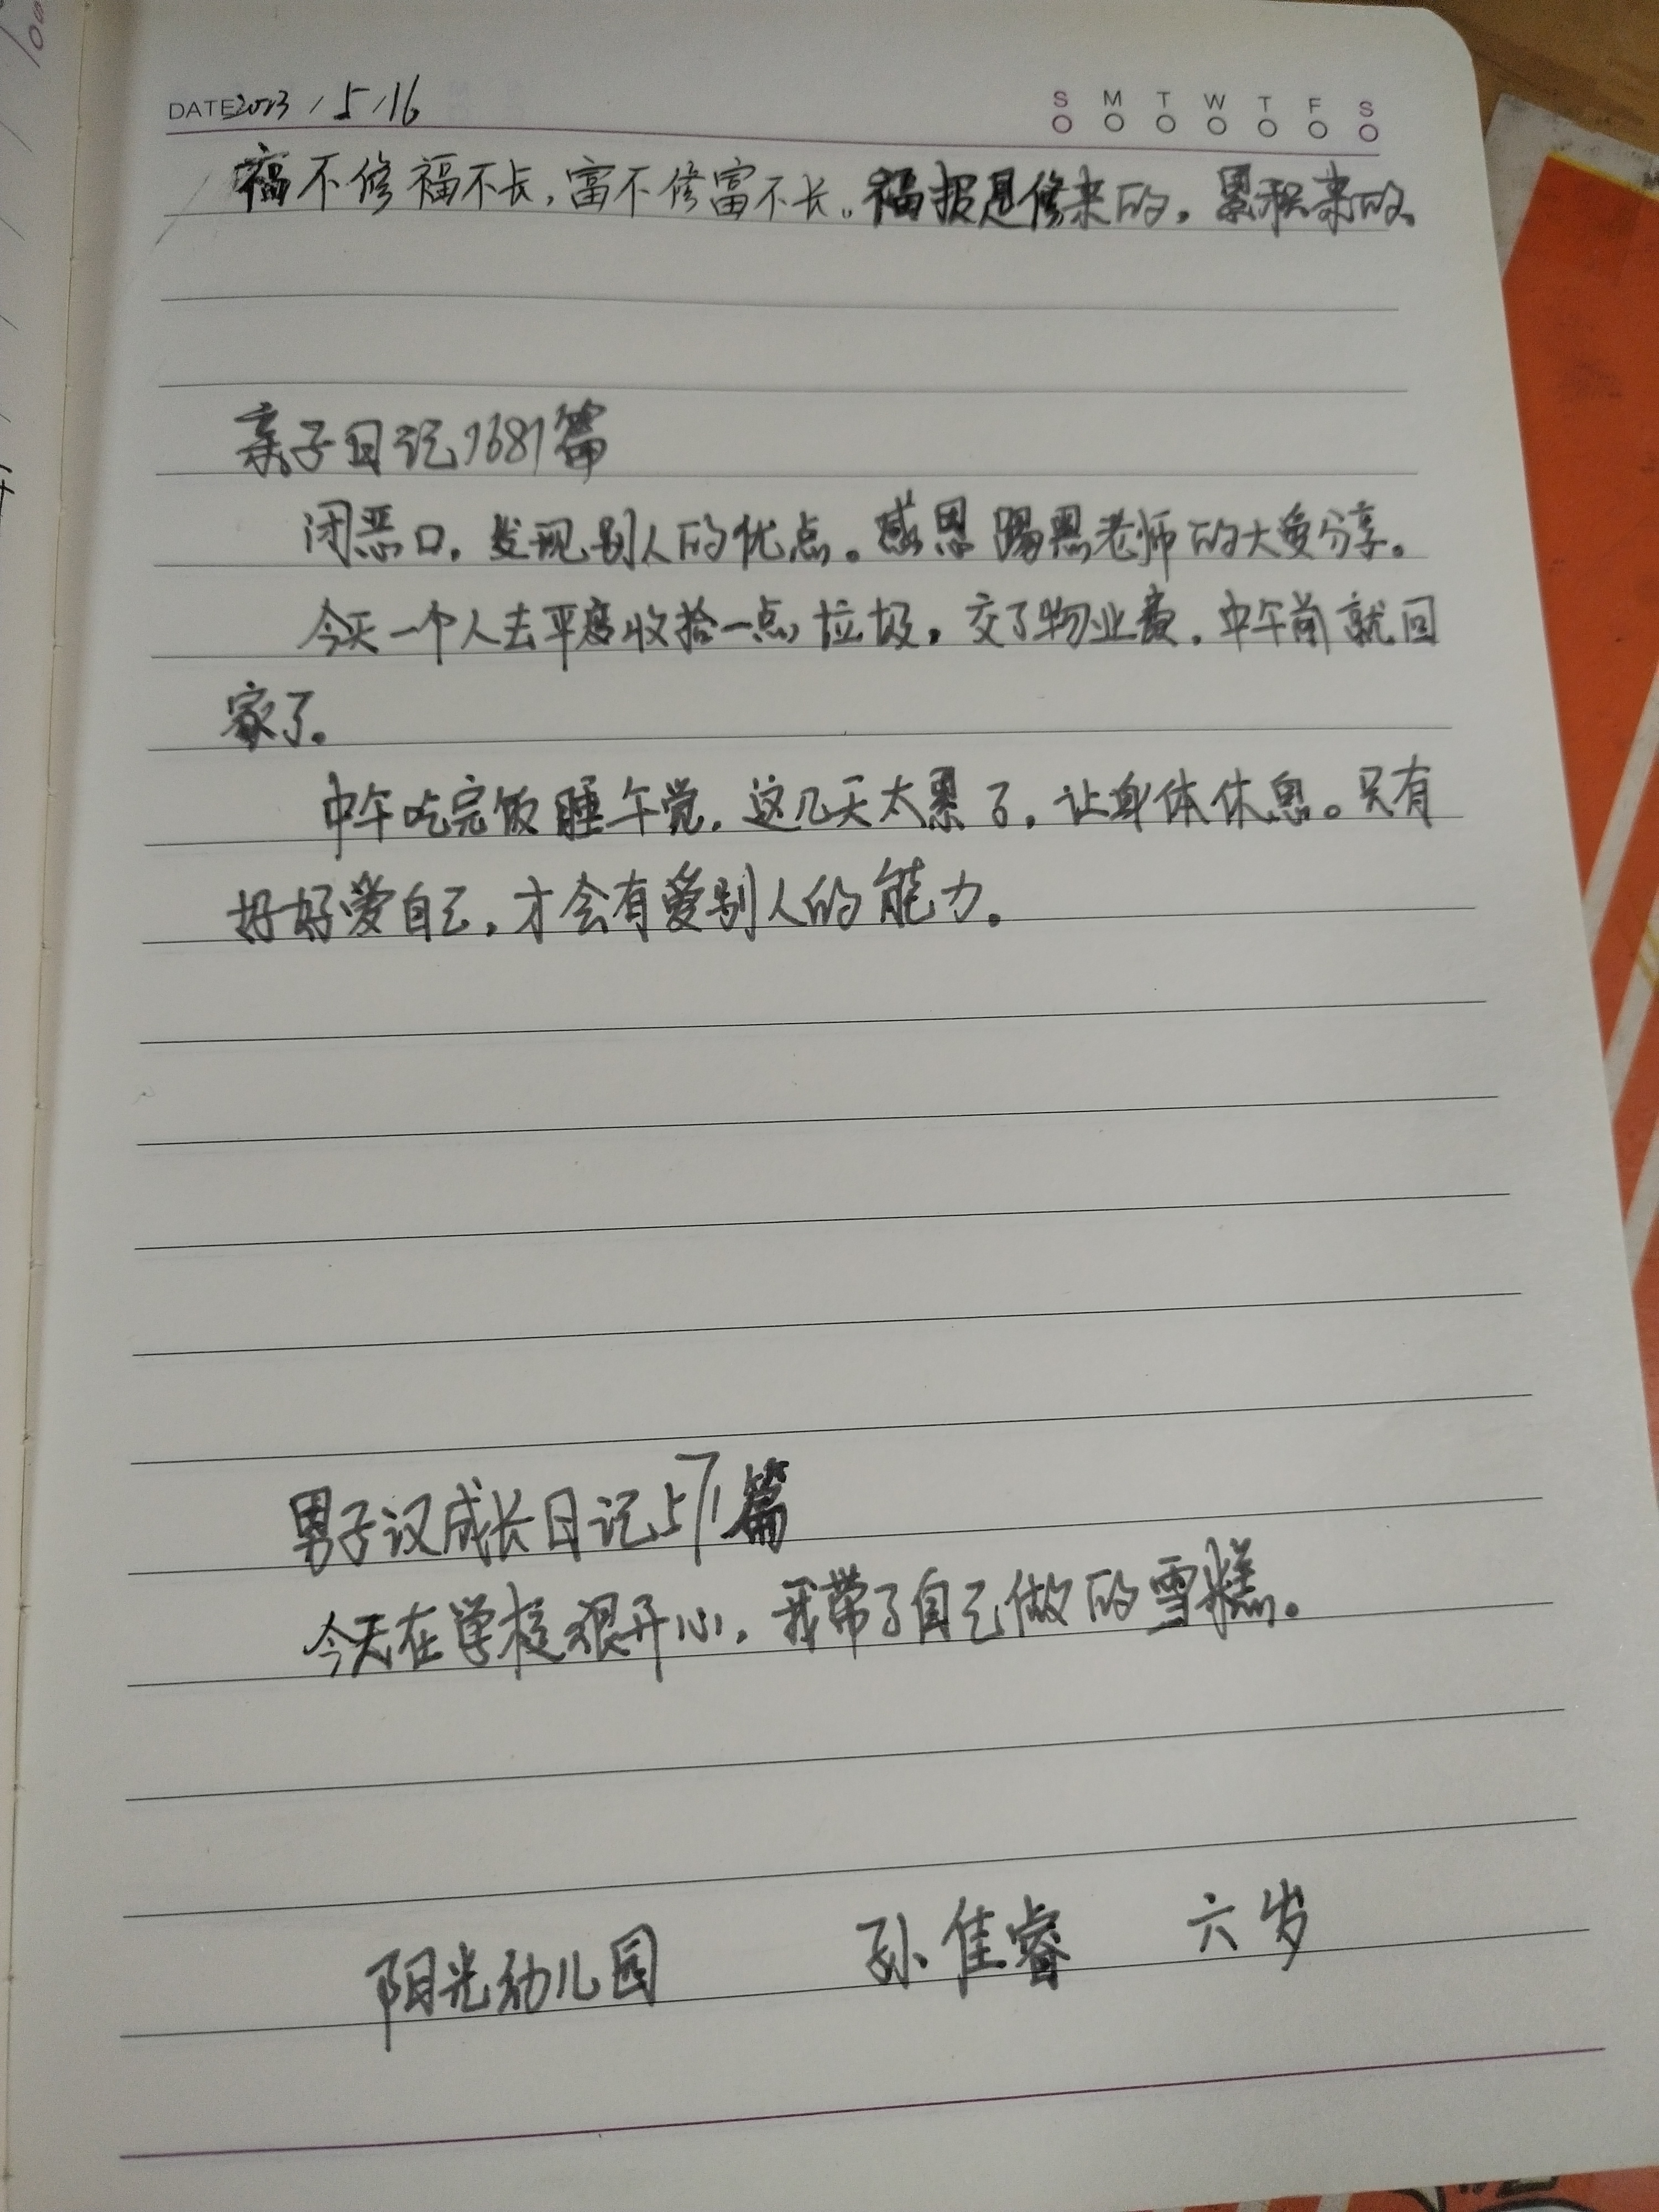 DATE 2023 / 5 / 16
S M T W T F S
福不修福不长,富不修富不长。福报是修来的,累积来的。
亲子日记1681篇
闭恶口,发现别人的优点。感恩赐恩老师的大爱分享。
今天一个人去平度收拾一点垃圾,交了物业费,中午前就回
家了。
中午吃完饭睡午觉,这几天太累了,让身体休息。只有
好好爱自己,才会有爱别人的能力。
男子汉成长日记571篇
今天在学校很开心,我带了自己做的雪糕。
阳光幼儿园 孙佳睿 六岁